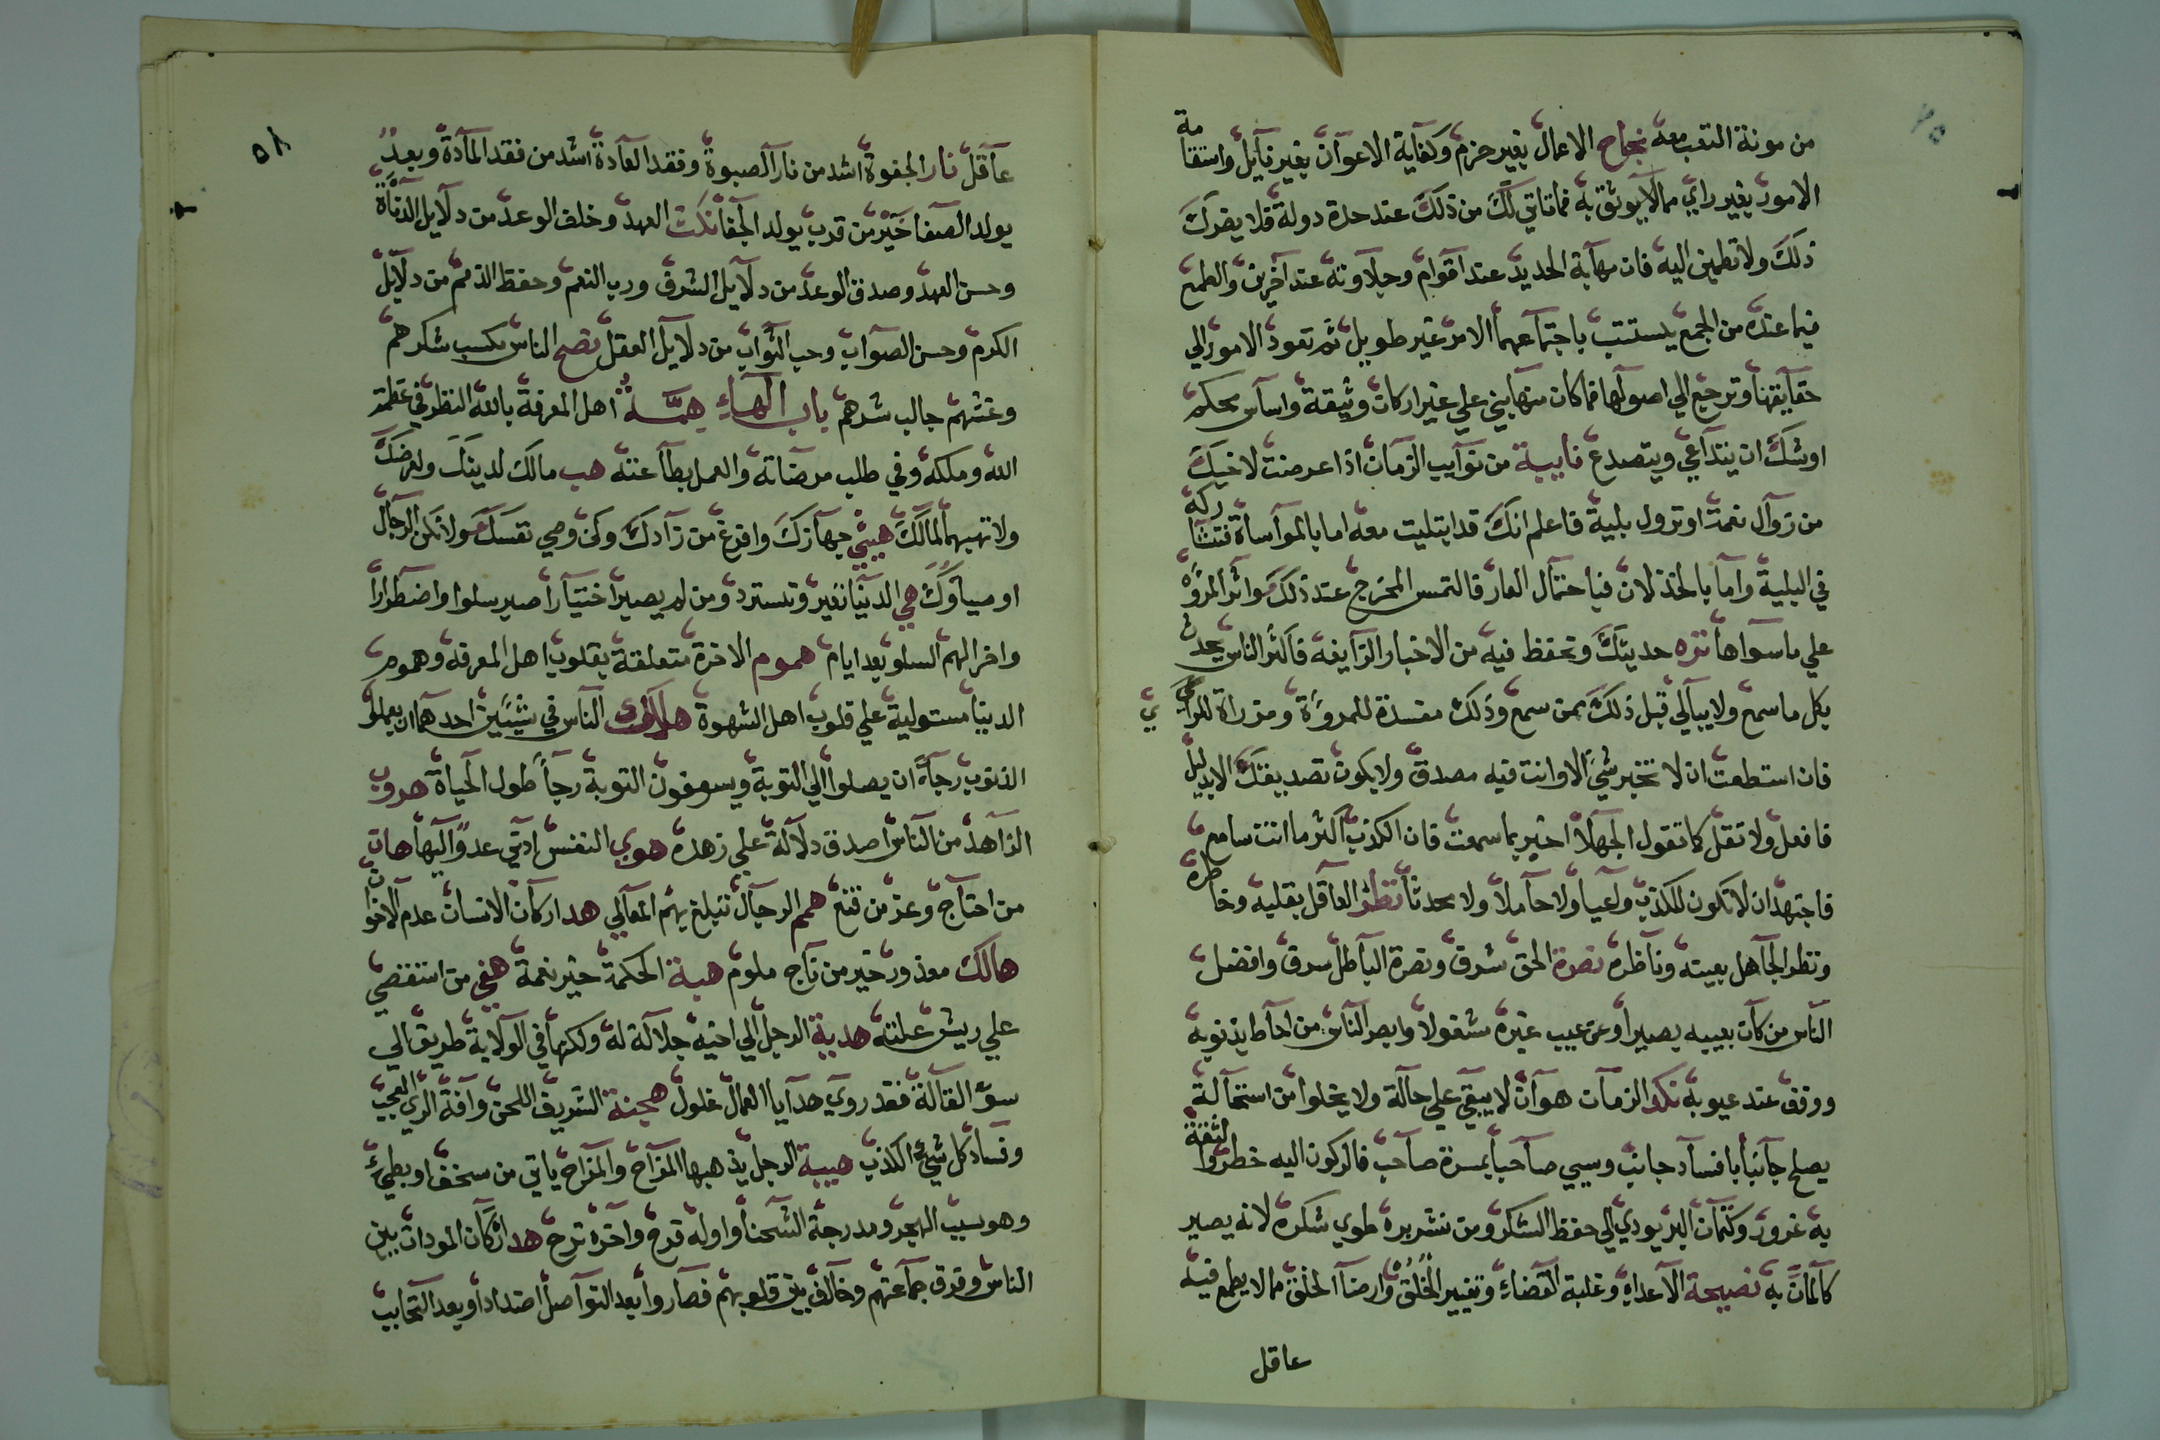 من مونة التعب معه نجاح الاعمال بغير حزم وكفاية الاعوان بغير نايل واستقامة
الامور بغير راي مما لا يوثق به فما تاتي لك من ذلك عند حدة دولة فلا يغرك
ذلك ولا تطمين اليه فان مهابة الحديد عند اقوام وحلاوته عند آخرين والطمع
فيما عنده من الجمع يستتب باجتماعهما الامر غير طويل ثم تعود الامور الي
حقايقها وترجع الي اصولها فما كان منها بني علي غير اركان وثيقة واساس محكم
اوشك ان يتداعي ويتصدع نايبة من نوايب الزمان اذا عرضت لاخيك
من زوال نعمة او نزول بلية فاعلم انك قد ابتليت معه اما بالمواساة فتشاركه
في البلية واما بالخذلان فباحتمال العار فالتمس المخرج عند ذلك واثر المروة
علي ما سواها نزه حديثك وتحفظ فيه من الاخبار الزايفة فاكثر الناس يحدث
بكل ما سمع ولا يبالي قبل ذلك بمن سمع وذلك مفسدة للمروة ومزراة للراي
فان استطعت ان لا تخبر شي الا وانت فيه مصدق ولا يكون تصديقك الا بدليل
فافعل ولا تقل كما تقول الجهلا اخبر بما سمعت فان الكذب اكثر ما انت سامع
فاجتهد ان لا تكون للكذب واعيا ولا حاملا ولا محدثا نظر العاقل بقلبه وخاطره
ونظر الجاهل بعينه وناظره نصرة الحق شرف ونصرة الباطل سرف وافضل
الناس من كان بعيبه بصيرا وعن عيب غيره مشغولا وابصر الناس من احاط بذنوبه
ووقف عند عيوبه نكد الزمان هوان لا يبقي علي حالة ولا يخلوا من استحالة
يصلح جانبا بافساد جانب وسيي صاحبا بمسرة صاحب فالركون اليه خطر والثقة
به غرور وكتمان البر يودي الي حفظ الشكر ومن نشر بره طوي شكره لانه يصير
كالمان به نصيحة الاعداء وغلبة القضاء وتغيير الخلق وارضا الخلق مما لا يطمع فيه
عاقل
٥٨
عاقل نار الجفوة اشد من نار الصبوة وفقد العادة اشد من فقد المادة وبعد
يولد الصفا خير من قرب يولد الجفا نكث العهد وخلف الوعد من دلايل الدناة
وحسن العهد وصدق الوعد من دلايل الشرف ورب النعم وحفظ الذمم من دلايل
الكرم وحسن الصواب وحب الثواب من دلايل العقل نصح الناس يكسب شكرهم
وغشهم جالب شرهم باب الهاء همة اهل المعرفة بالله النظر في عظمة
الله وملكه وفي طلب مرضاته والعمل بطاعته هب مالك لدينك ولعرضك
ولا تهبهما لمالك هيي جهازك وافرغ من زادك وكن وصي نفسك ولا تكن الرجال
اوصياوك هي الدنيا تعير وتسترد ومن لم يصبر اختيارا صبر سلوا واضطرارا
واخر الهم السلو بعد ايام هموم الاخرة متعلقة بقلوب اهل المعرفة وهموم
الدنيا مستولية علي قلوب اهل الشهوة هلاك الناس في شيئين احدهما ان يعملوا
الذنوب رجاة ان يصلوا الي التوبة ويسوفون التوبة رجا طول الحياة هروب
الزاهد من الناس اصدق دلالة علي زهده هوي النفس ادني عدو اليها هان
من احتاج وعز من قنع همم الرجال تبلغ بهم المعالي هد اركان الانسان عدم الاخوان
هالك معذور خير من ناج ملوم هبة الحكمة خير نعمة هفي من استقضي
علي ريش علته هدية الرجل الي اخيه جلالة له ولكنها في الولاية طريق الي
سو القالة فقد روي هدايا العمال غلول هجنة الشريف اللحن وآفة الري العجب
وفساد كل شيء الكذب هيبة الرجل يذهبها المزاح والمزاح ياتي من سخف او بطر
وهو سبب الهجر ومدرجة الشحنا واوله فرح واخره ترح هد اركان المودات بين
الناس وفرق جماعتهم وخالف بين قلوبهم فصاروا بعد التواصل اضدادا وبعد التحابب